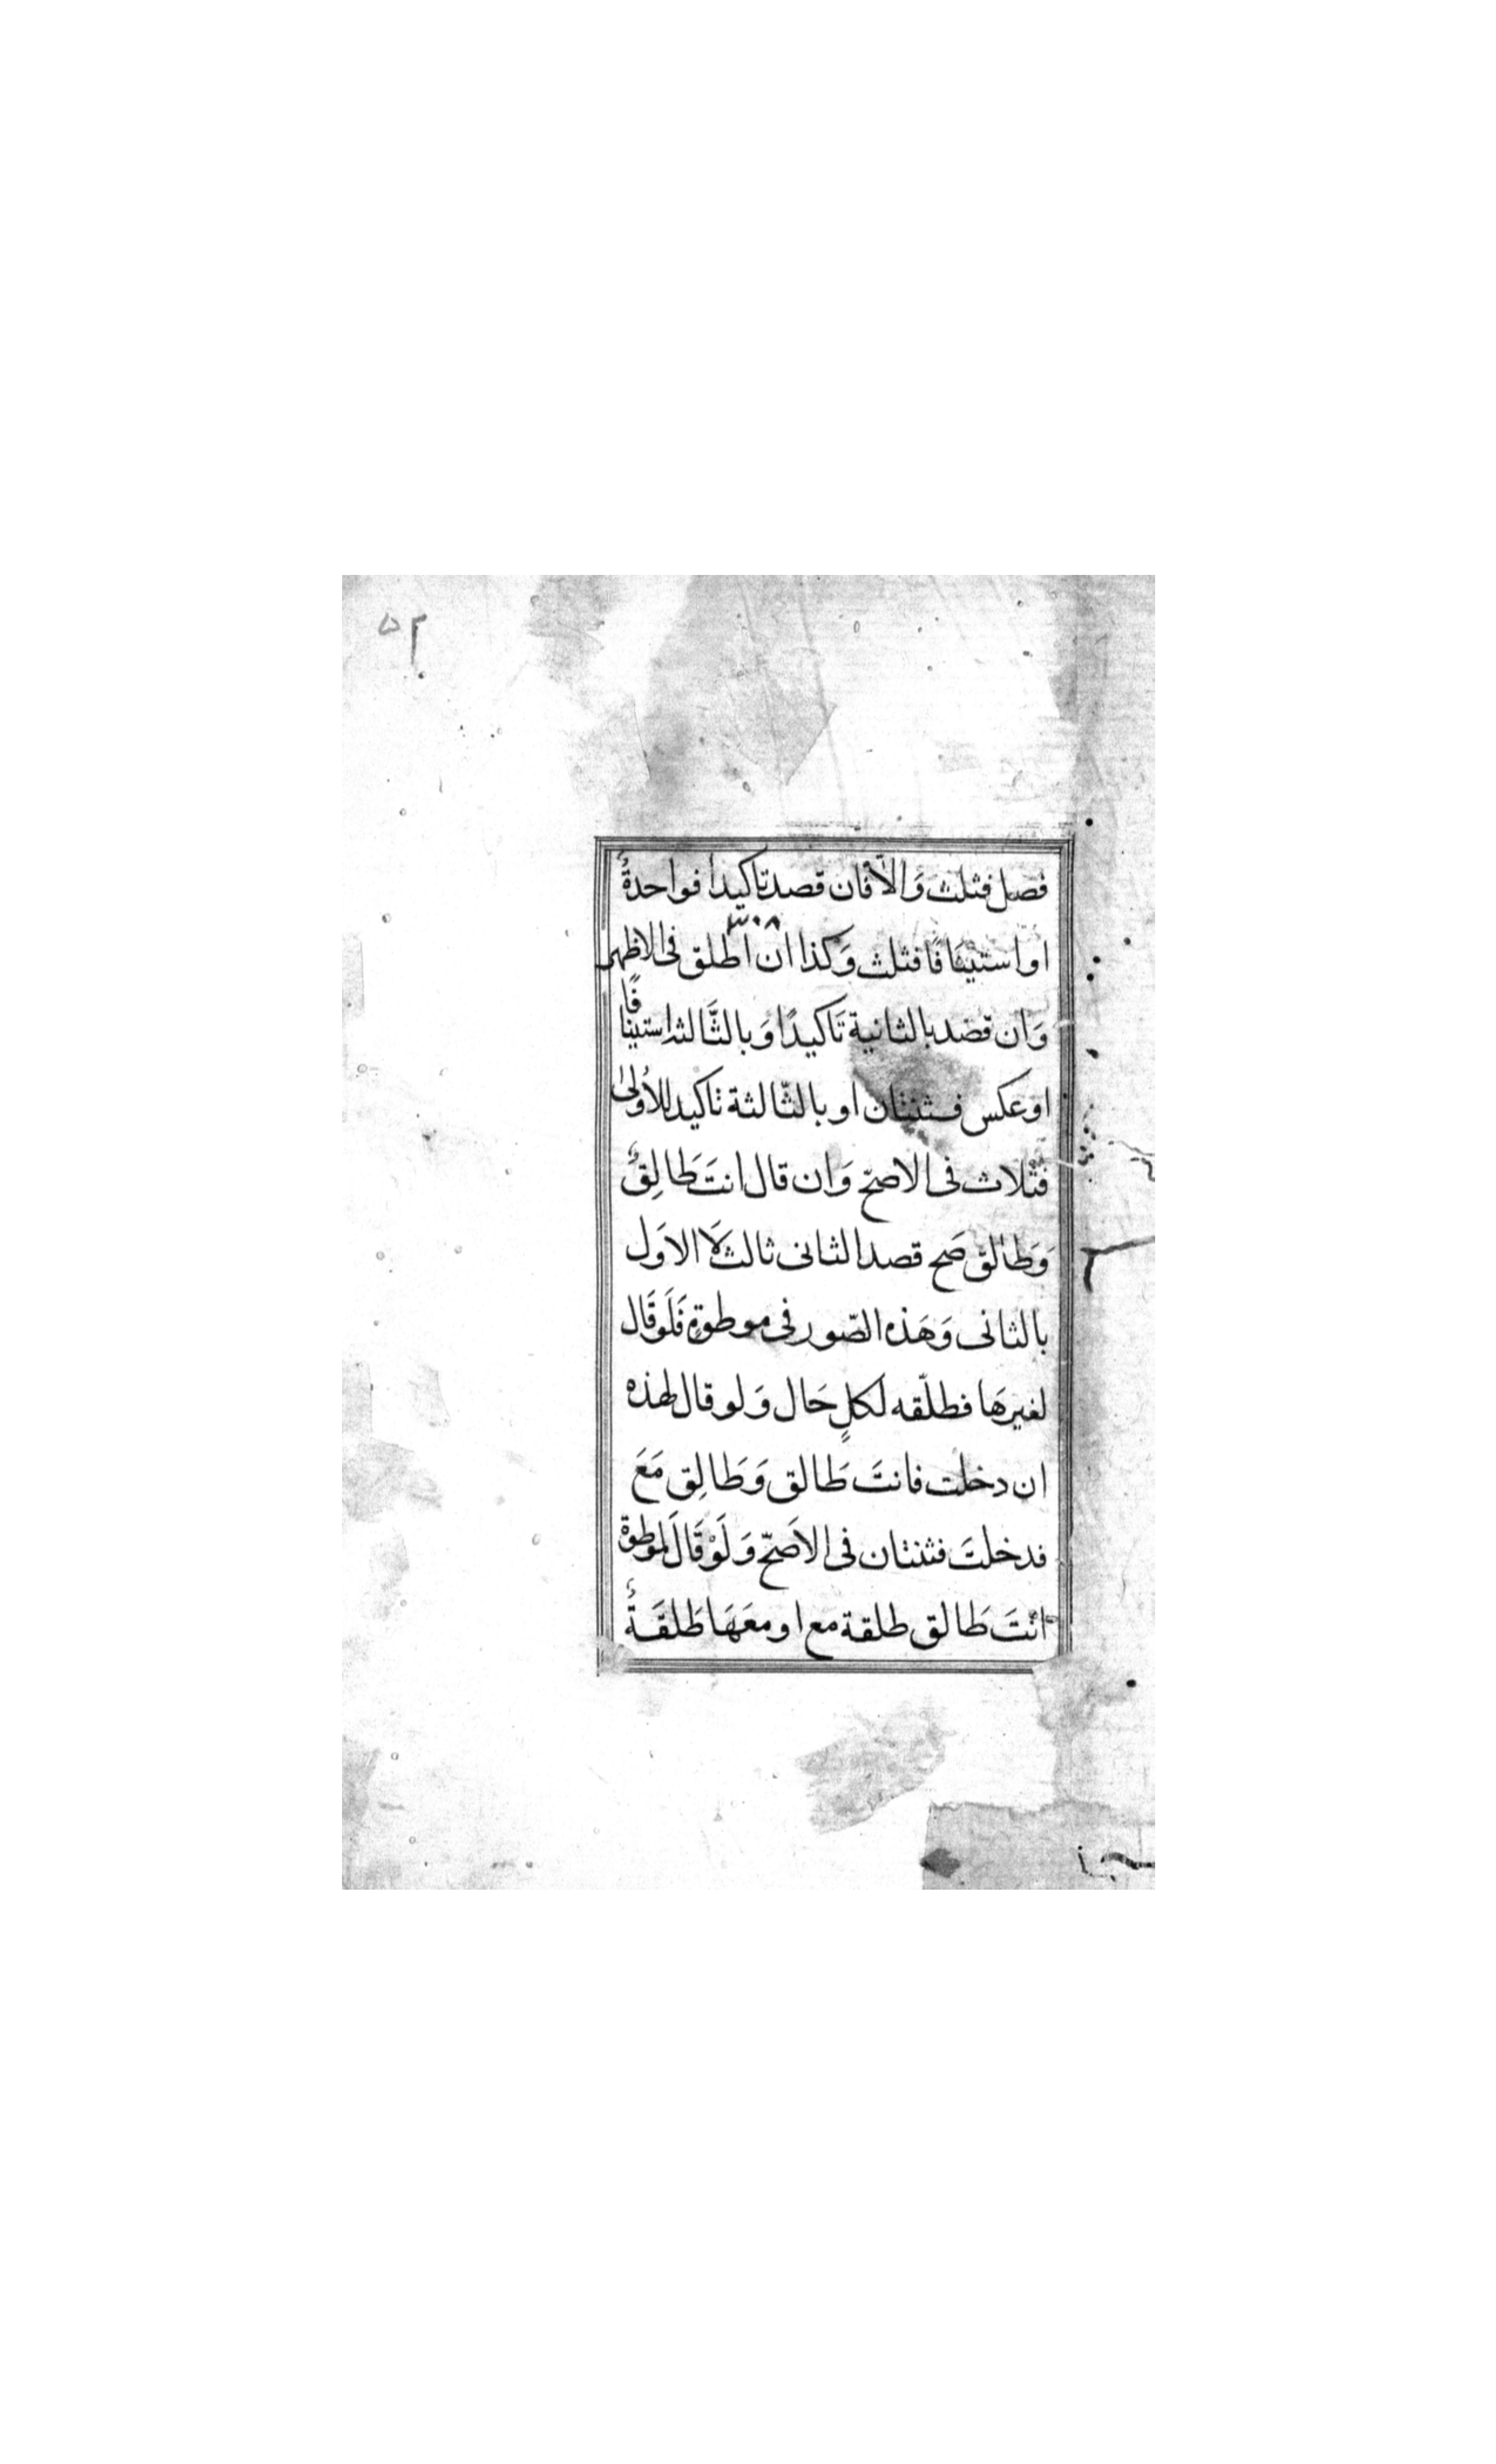 ٥٢
فصل فثلث وَالاّ فان قصد تاكيداً فواحدةٌ
٣٠٨
او استينَافًا فثلث وَكذا ان اطلق فى الاظهر
وَان قصَد بالثانية تَاكيدًا وَبالثَّالثه استينافًا
او عكس فثنتان او بالثّالثة تاكيد الاُولىٰ
فثلاث فى الاصحّ وَان قال انتَ طَالِقٌ
وَوَطالق صَح قصد الثانى ثالث لَا الاوَل
بالثانى وَهَذه الصّور فى موطوةٍ فَلَوقَال
لغيرهَا فطلّقه لكلِ حَال وَلو قال لهذه
ان دخلت فانتَ طَالق وَطَالِق مَعَ
فدخلتَ فثنتان فى الاَصحّ وَلَوْ قَالَ لموطوة
انْتَ طَالق طلقة مع او معَهَا طَلقَةٌ